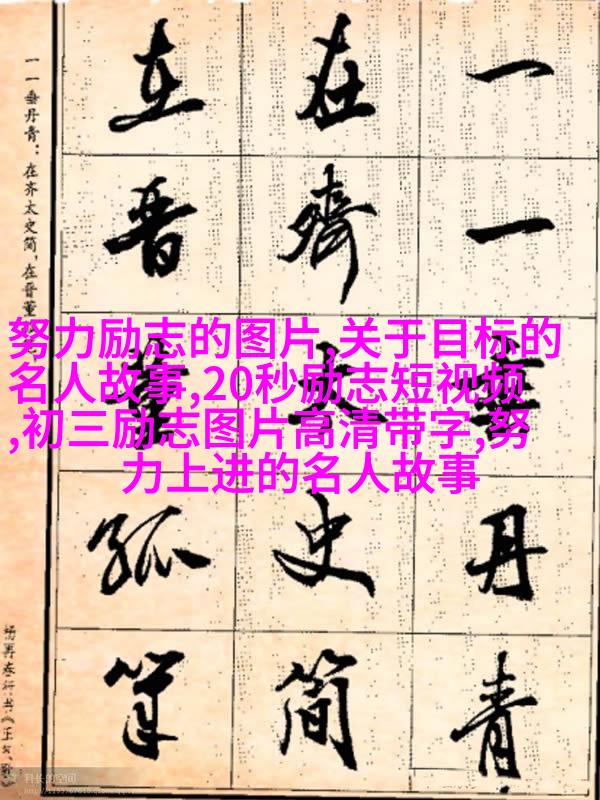 一一垂丹青
在齊太史简
在晋董孤筆
一一垂丹青：在齐太史简，在晋董
杨再春行书《正气歌》
努力励志的图片,关于目标的
名人故事,20秒励志短视频
,初三励志图片高清带字,努
力上进的名人故事
科长的空间